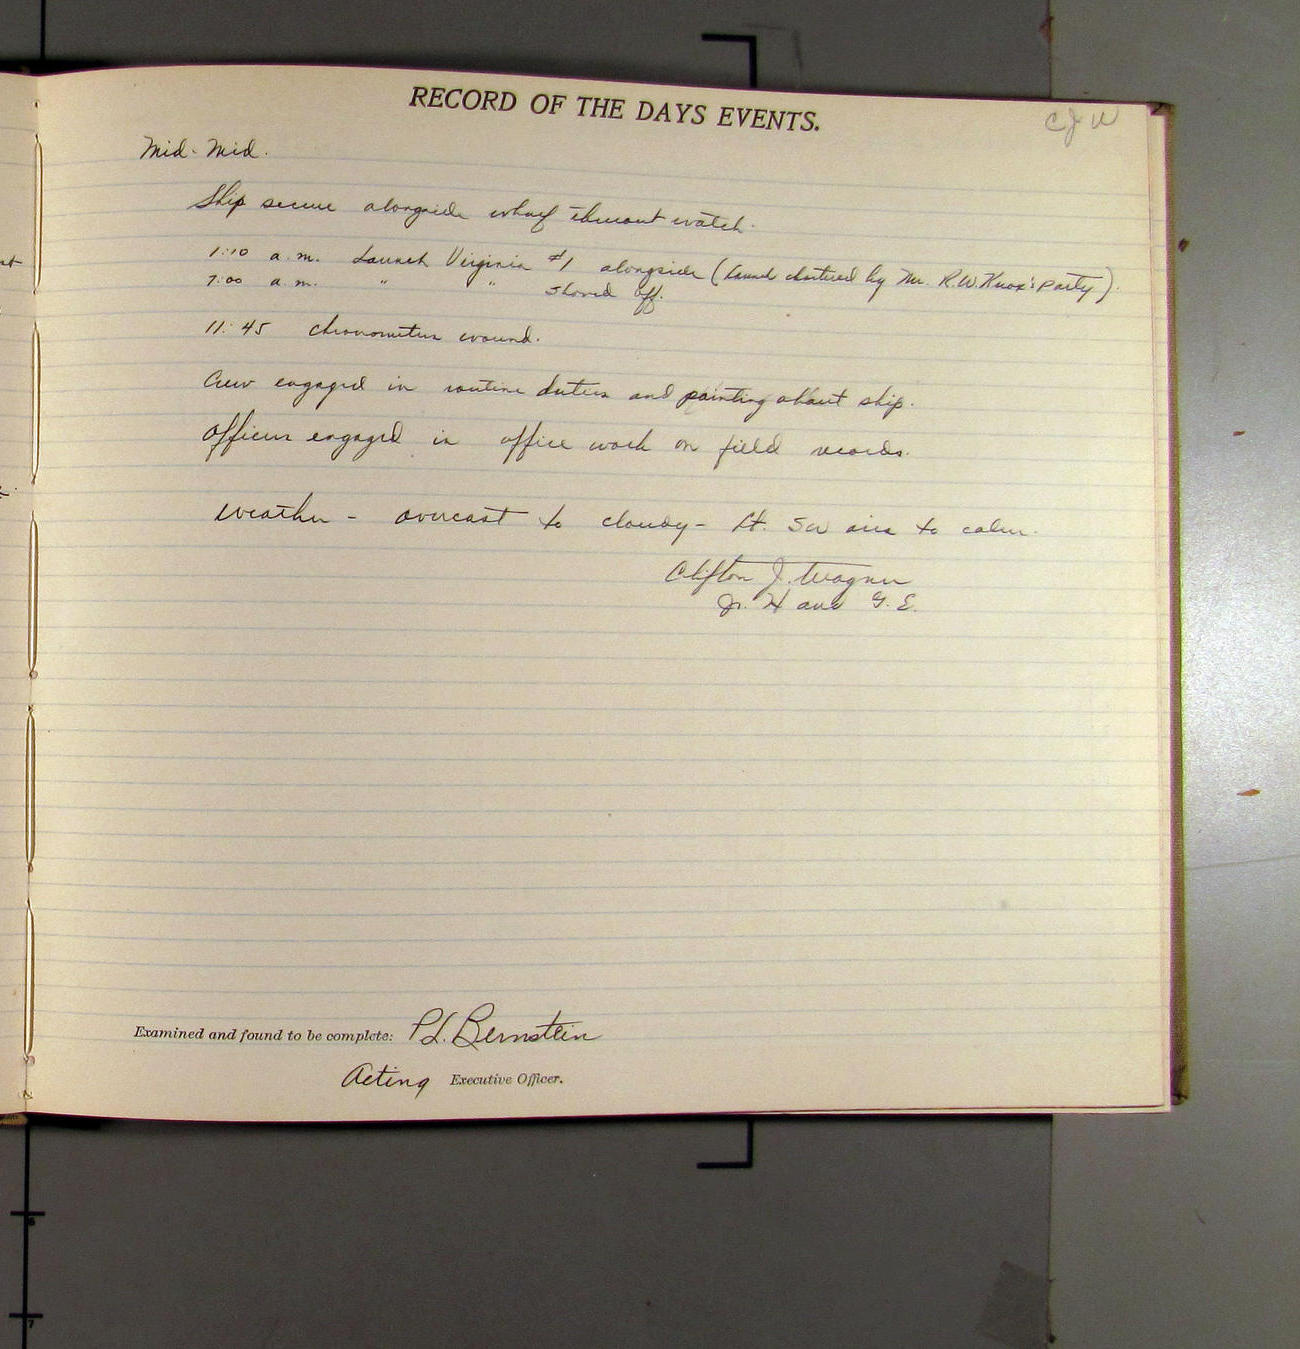 RECORD OF THE DAYS EVENTS.
C J W
Mid - Mid.
Ship secure alongside wharf thruout watch.
1:10 a.m. Launch Virginia #1 alongside (launch chartered by Mr. R.W. Knox's party).
7:00 a.m. " " shoved off.
11:45 chronometers wound.
Crew engaged in routine duties and painting about ship.
Officers engaged in office work on field records.
Weather - overcast to cloudy - Lt. SW airs to calm.
Clifton J. Wagner
Jr. H and G. E.
Examined and found to be complete: P.L. Bernstein
Acting Executive Officer.